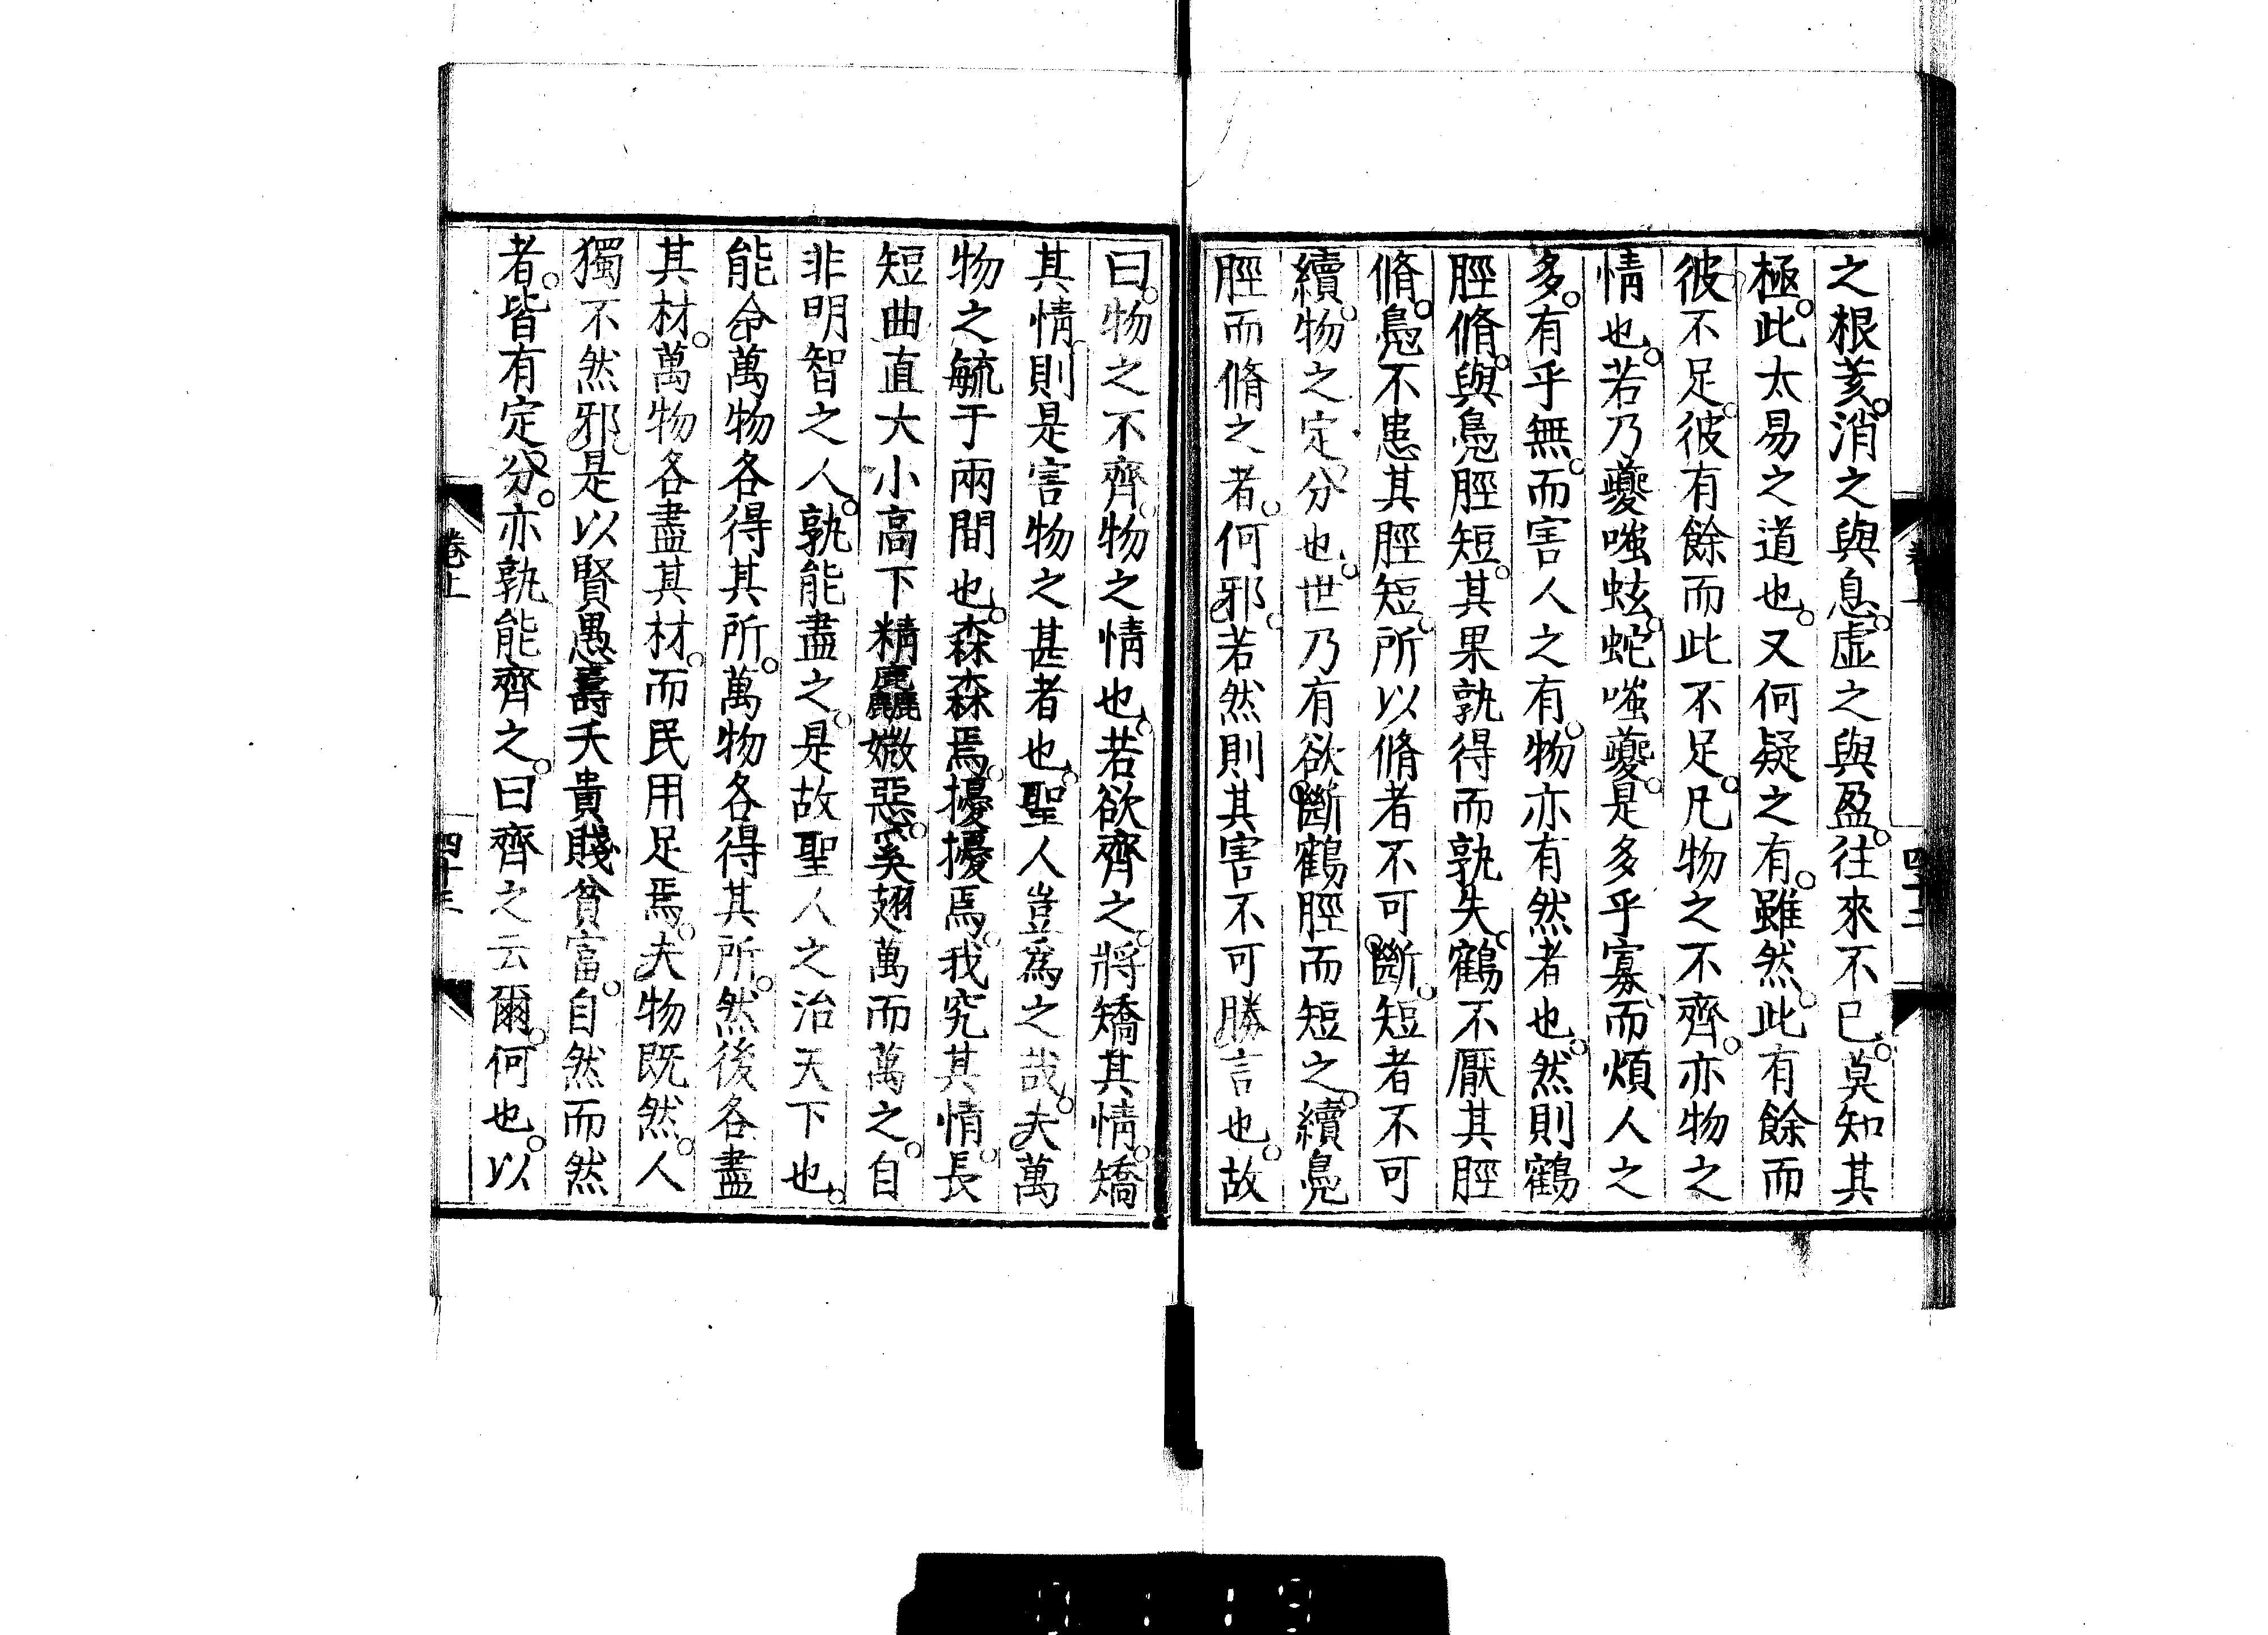 之根荄。消之與息。虛之與盈。往來不已。莫知其
極。此太易之道也。又何疑之有。雖然。此有餘而
彼不足。彼有餘而此不足。凡物之不齊。亦物之
情也。若乃夔嗤蚿。蛇嗤夔。是多乎寡。而煩人之
多。有乎無。而害人之有。物亦有然者也。然則鶴
脛脩。與鳧脛短。其果孰得而孰失。鶴不厭其脛
脩。鳧不患其脛短。所以脩者不可斷。短者不可
續。物之定分也。世乃有欲斷鶴脛而短之。續鳧
脛而脩之者。何邪。若然則其害不可勝言也。故
曰。物之不齊。物之情也。若欲齊之。將矯其情。矯
其情。則是害物之甚者也。聖人豈爲之哉。夫萬
物之毓于兩間也。森森焉。擾擾焉。我究其情。長
短曲直大小高下精麤媺惡。奚翅萬而萬之。自
非明智之人。孰能盡之。是故聖人之治天下也。
能命萬物各得其所。萬物各得其所。然後各盡
其材。萬物各盡其材。而民用足焉。夫物既然。人
獨不然邪。是以賢愚壽夭貴賤貧富。自然而然
者。皆有定分。亦孰能齊之。曰齊之云爾。何也。以
卷上